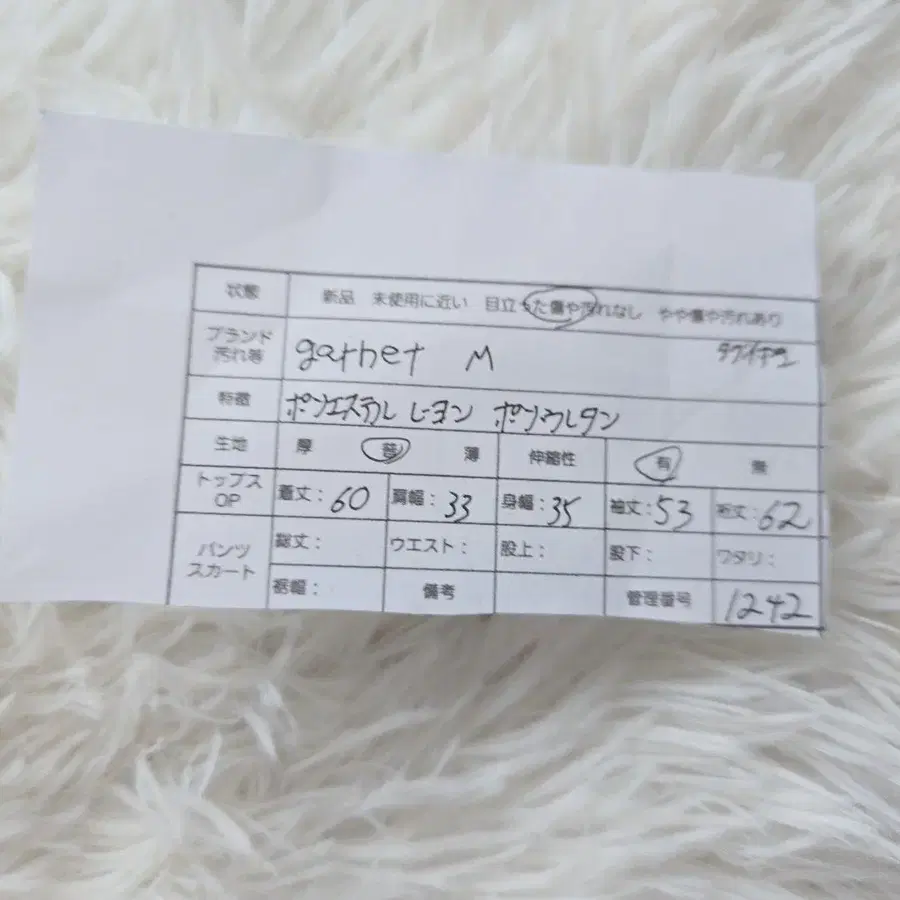 状態 新品 未使用に近い 目立った傷や汚れなし やや傷や汚れあり
ブランド 汚れ等 garnet M
特徴 ポリエステル レーヨン ポリウレタン
生地 厚 普 薄 伸縮性 有 無
トップス OP 着丈：60 肩幅：33 身幅：35 袖丈：53 裄丈：62
パンツ スカート 総丈： ウエスト： 股上： 股下： ワタリ：
裾幅： 備考 管理番号 1242